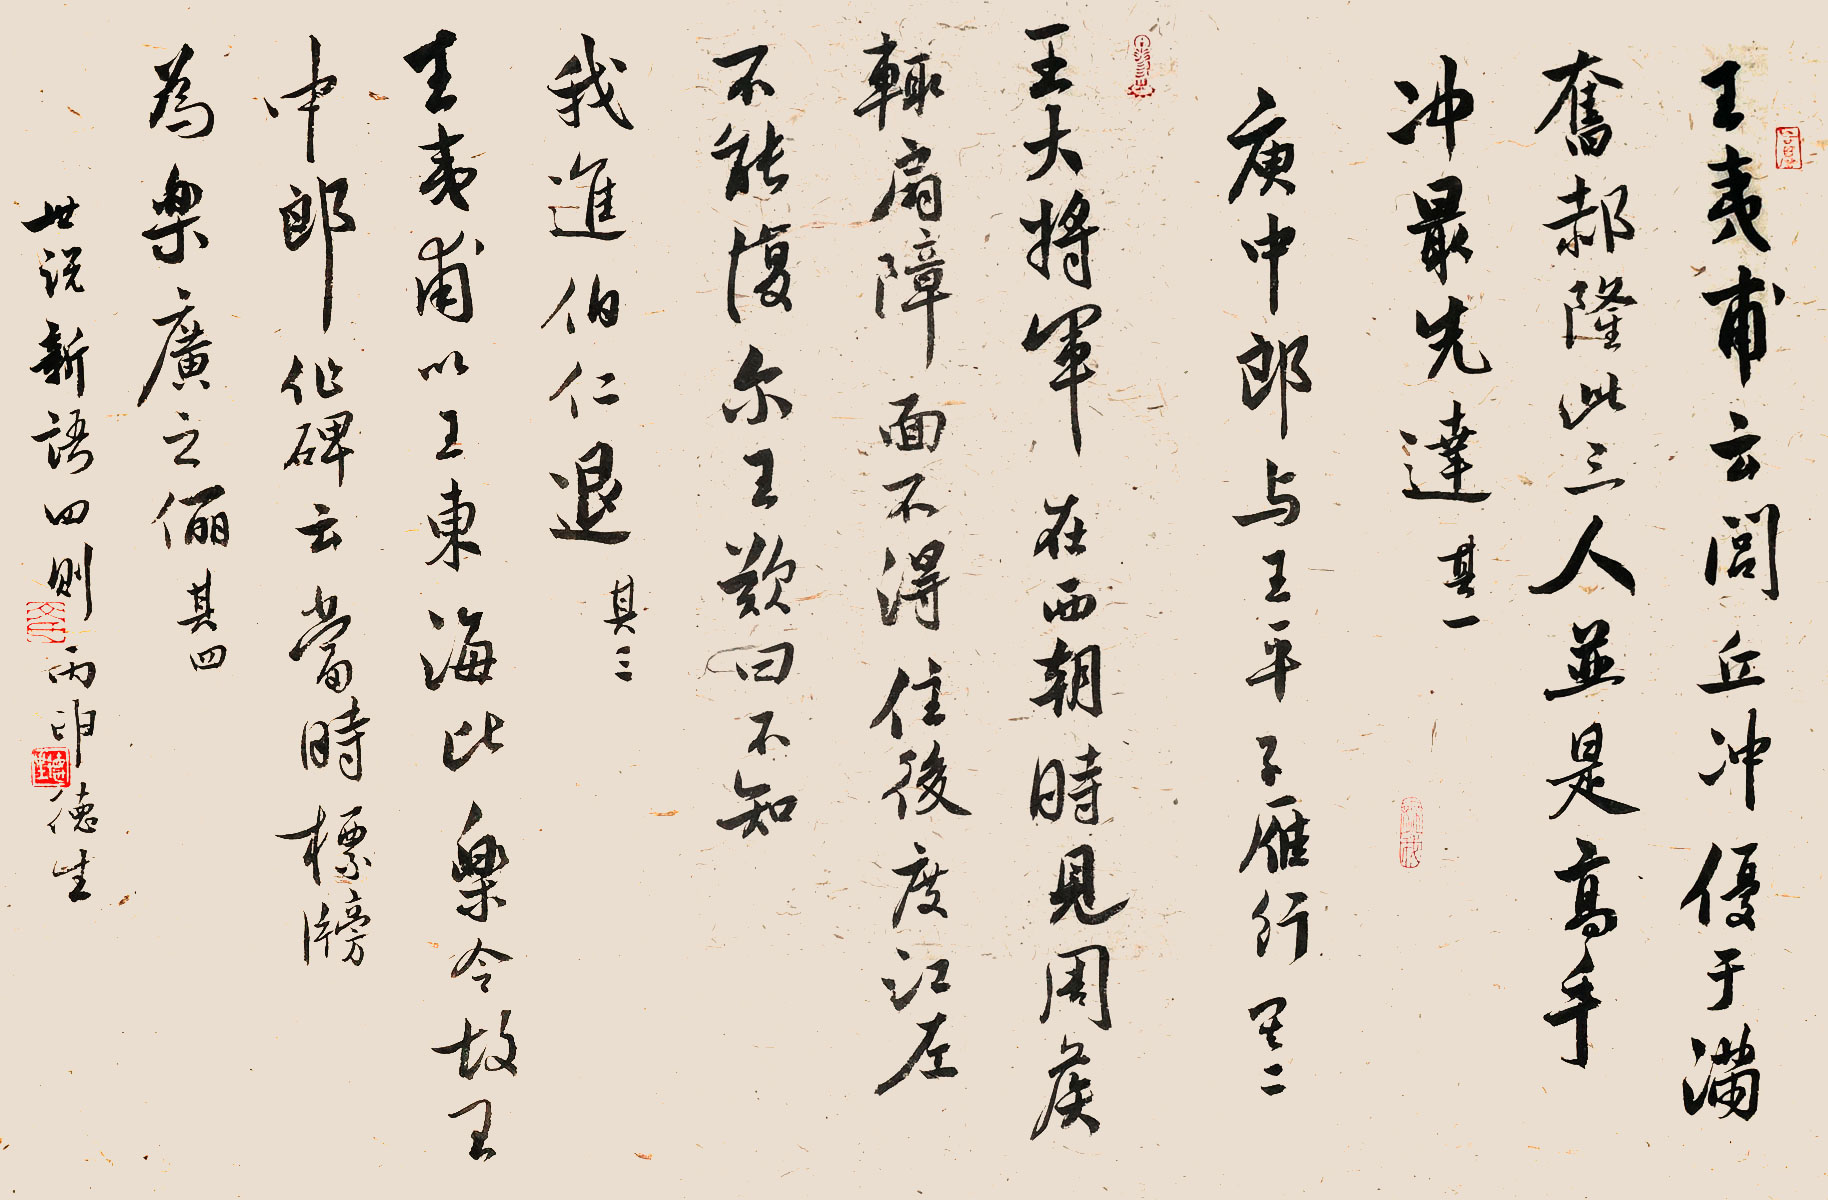 王夷甫云閭丘冲優于滿
奮郝隆此三人並是高手
冲最先達其一
庾中郎与王平子雁行其二
王大將軍在西朝時見周侯
輙扇障面不得住後度江左
不能復尔王歎曰不知
我進伯仁退其三
王夷甫以王東海比樂令故王
中郎作碑云當時標牓
為樂廣之儷其四
世説新語四則丙申德生